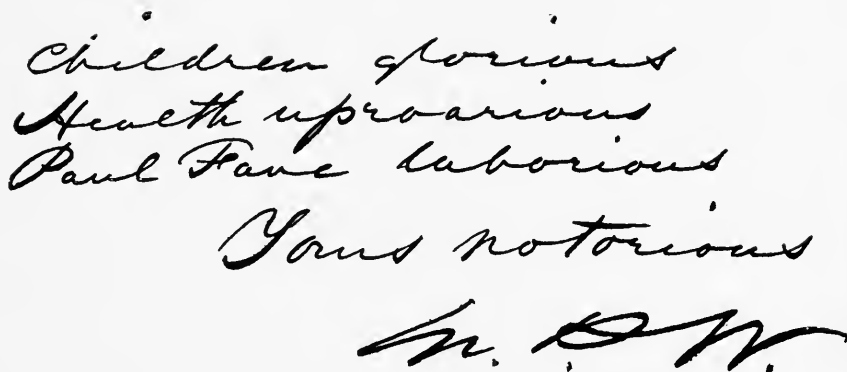 Children glorious
Health uproarious
Paul Fane laborious
Yours notorious
N. P. W.